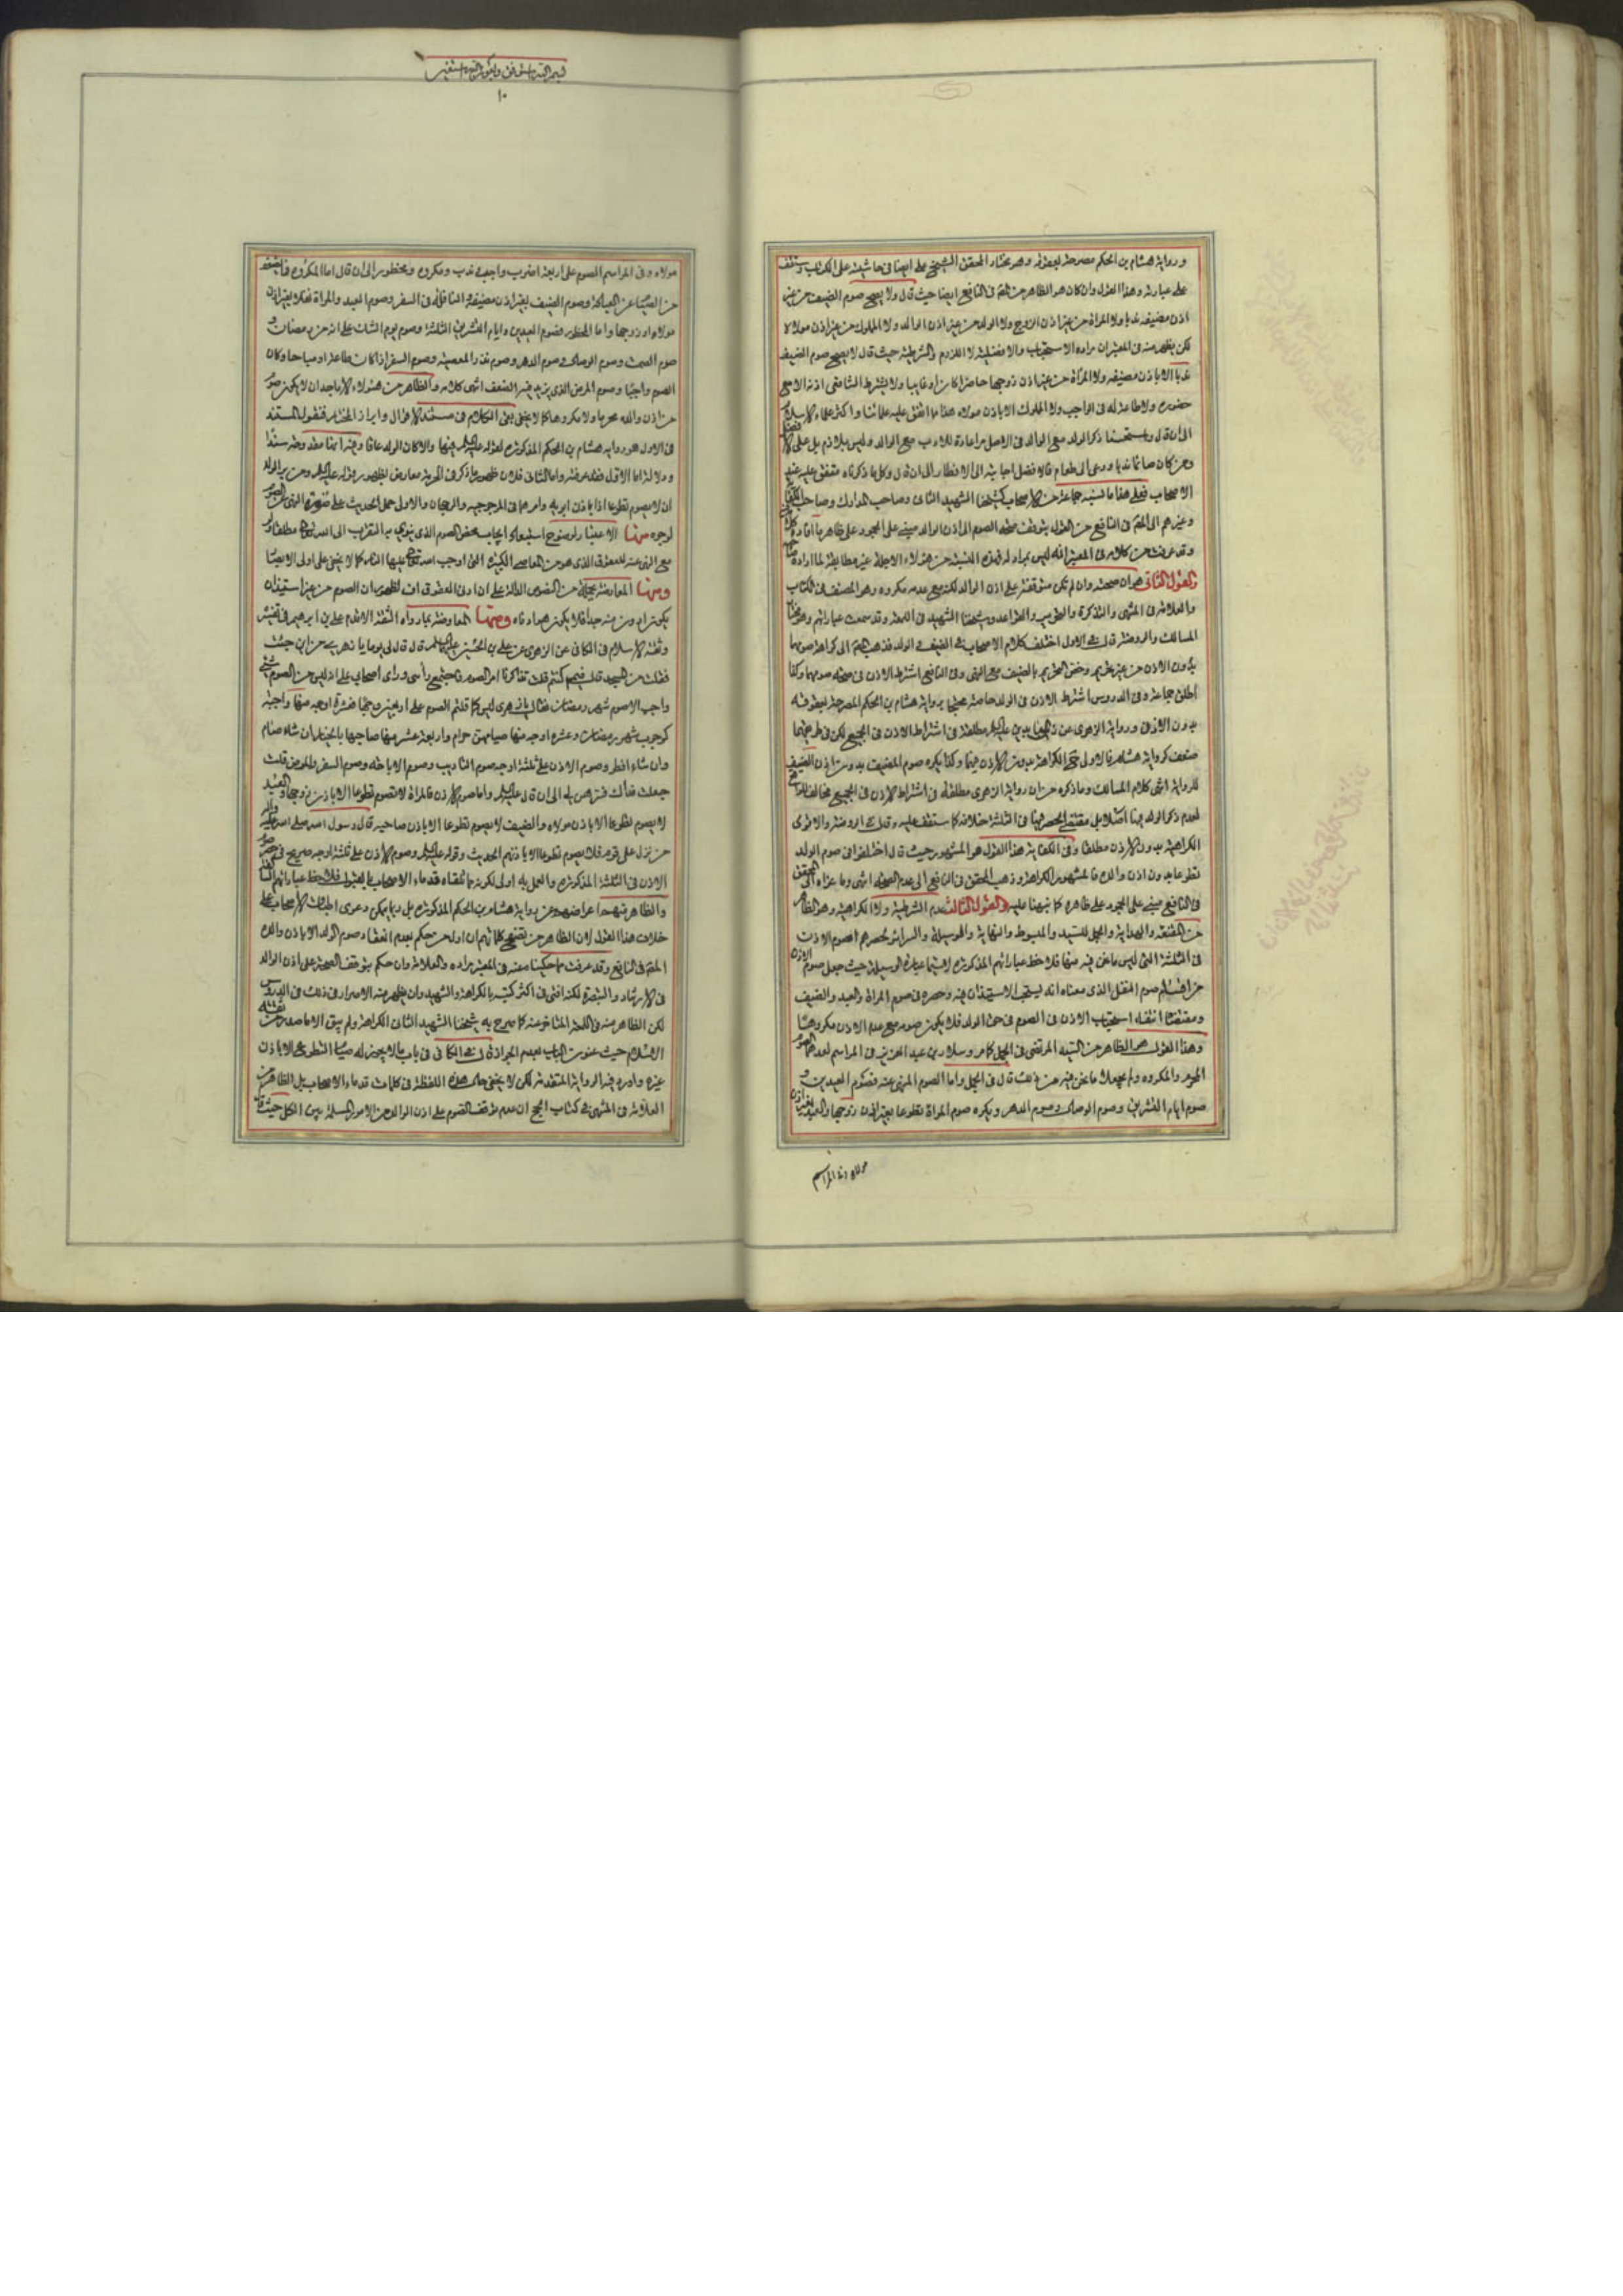 ورواية هشام بن الحكم مصرحة بعقوقه وهو مختار المحقق الشيخ على ايضا في حاشيته على الكتاب وستقف
على عبارته وهذا القول وان كان هو الظاهر من المص في النافع ايضا حيث قال ولا يصح صوم الضيف من غير
اذن مضيفه ندبا ولا المراة من غير اذن الزوج ولا الولد من غير اذن الوالد ولا المملوك من غير اذن مولاه
لكن يظهر منه في المعتبر ان مراده الاستحباب والافضلية لا اللزوم والشرطية حيث قال لا يصح صوم الضيف
ندبا الا باذن مضيفه ولا المراة من غير اذن زوجها حاضرا كان او غايبا ولا يشترط الشافعى اذنه الا مع
حضوره ولا طاعة له في الواجب ولا المملوك الا باذن مولاه هذا ما اتفق عليه علمائنا واكثر علماء الاسلام
الى ان قال واستحسنا ذكر الولد مع الوالد في الاصل مراعاة للادب مع الوالد وليس بلازم بل على الافضل
ومن كان صائما ندبا ودعى الى طعام فالافضل اجابته الى الافطار الى ان قال وكل ما ذكرناه متفق عليه عند
الاصحاب فعلى هذا ما نسبه جماعة من الاصحاب كشيخنا الشهيد الثانى وصاحب المدارك وصاحب
وغيرهم الى المص في النافع من القول بتوقف صحة الصوم الى اذن الوالد مبنى على الجمود على ظاهر ما افاده
وقد عرفت من كلامه في المعتبر انه ليس بمراد له فهذه النسبة من هؤلاء الاجلة غير مطابقة لما اراده
والقول الثانى هو ان صحته وان لم تكن متوقفة على اذن الوالد لكنه مع عدمه مكروه وهو المصنف في الكتاب
والعلامة في المنتهى والتذكرة والتحرير والقواعد وشيخنا الشهيد في اللمعة وقد سمعت عباراتهم وهو مختار
المسالك والروضة قال في الاول اختلف كلام الاصحاب في الضيف والولد فذهب المص الى كراهة صومهما
بدون الاذن من غير تحريم وخص التحريم بالضيف مع النهى وفي النافع اشترط الاذن في صحة صومهما وكذا
اطلق جماعة وفي الدروس اشترط الاذن في الولد خاصة محتجا برواية هشام بن الحكم المصرحة بعقوقه
بدون الاذن ورواية الزهرى عن زين العابدين عليه السلم مطلقة في اشتراط الاذن في الجميع لكن في طريقها
ضعف كرواية هشام فالاولى حمل الكراهة بدون الاذن فيهما وكذا يكره صوم المضيف بدون اذن الضيف
للرواية انتهى كلام المسالك وما ذكره من ان رواية الزهرى مطلقة في اشتراط الاذن في الجميع مخالف للواقع
لعدم ذكر الولد فيها اصلا بل مقتضى الحصر فيها في الثلثة خلافه كما ستقف عليه وقال في الروضة والاقوى
الكراهية بدون الاذن مطلقا وفي الكفاية هذا القول هو المشهور حيث قال اختلفوا في صوم الولد
تطوعا بدون اذن والده فالمشهور الكراهة وذهب المحقق في النافع الى عدم الصحة انتهى وما عزاه الى المحقق
في النافع مبنى على الجمود على ظاهره كما نبهنا عليه والقول الثالث عدم الشرطية ولا الكراهية وهو الظاهر
من المقنعة والهداية والجمل للسيد والمبسوط والنهاية والوسيلة والسرائر لحصرهم صوم الاذن
في الثلثة التى ليس ما نحن فيه منها فلاحظ عباراتهم المذكورة لاسيما عبارة الوسيلة حيث جعل صوم الاذن
من اقسام صوم النفل الذى معناه انه يستحب الاستيذان فيه وحصره في صوم المراة والعبد والضيف
ومقتضاه انتفاء استحباب الاذن في الصوم في حق الولد فلا يكون صومه مع عدم الاذن مكروها
وهذا القول هو الظاهر من السيد المرتضى في الجمل كما مر وسلار بن عبد العزيز في المراسم لعدهما الصوم
المحرم والمكروه ولم يجعلا ما نحن فيه من ذلك قال في الجمل واما الصوم المنهى عنه فصوم العيدين و
صوم ايام التشريق وصوم الوصال وصوم الدهر ويكره صوم المراة تطوعا بغير اذن زوجها والعبد بغير اذن
مولاه وفى المراسم
١٠
مولاه وفى المراسم الصوم على اربعة اضرب واجب وندب ومكروه ومحظور الى ان قال اما المكروه فما يضعف
من الصيام عن العبادة وصوم الضيف بغير اذن مضيفه النافلة في السفر وصوم العبد والمراة نفلا بغير اذن
مولاه او زوجها واما المحظور فصوم العيدين وايام التشريق الثلثة وصوم يوم الشك على انه من رمضان و
صوم الصمت وصوم الوصال وصوم الدهر وصوم نذر المعصية وصوم السفر اذا كان طاعة او مباحا وكان
الصوم واجبا وصوم المرض الذى يزيد فيه الضعف انتهى كلامه والظاهر من هؤلاء الاماجد ان لا يكون صوم
من اذن والده محرما ولا مكروها كما لا يخفى بقى الكلام في مستند الاقوال وابراز المختار فنقول المستند
في الاول هو رواية هشام بن الحكم المذكورة لقوله عليه السلم فيها والا كان الولد عاقا وفيه انها مقدوحة سندا
ودلالة اما الاول فقد عرفته واما الثانى فلان ظهور ما ذكر في الحرمة معارض بظهور قوله عليه السلم ومن بر الولد
ان لا يصوم تطوعا الا باذن ابويه وامرهما في المرجوحية والرجحان والاولى حمل الحديث على صورة النهى عن الصوم
لوجوه منها الاعتبار لوضوح استبعاد ايجاب محض الصوم الذى ينوى به التقرب الى الله تعالى مطلقا ولو
مع النهى عنه للعقوق الذى هو من المعاصى الكبيرة التى اوجب الله تعالى عليها النار كما لا يخفى على اولى الابصار
ومنها المعارضة بجملة من النصوص الدالة على ان ادنى العقوق اف لظهور ان الصوم من غير استيذان
يكون ادون منه جدا فلا يكون هو ادناه ومنها المعارضة بما رواه الثقة الاقدم على بن ابرهيم في تفسيره
وثقة الاسلام في الكافى عن الزهرى عن على بن الحسين عليه السلم قال قال لى يوما يا زهرى من اين جئت
فقلت من المسجد قال فيم كنتم قلت تذاكرنا امر الصوم فاجتمع رأيى وراى اصحابى على انه ليس من الصوم شئ
واجب الا صوم شهر رمضان فقال يا زهرى ليس كما قلتم الصوم على اربعين وجها فعشرة اوجه منها واجبة
كوجوب شهر رمضان وعشرة اوجه منها صيامهن حرام واربعة عشر منها صاحبها بالخيار ان شاء صام
وان شاء افطر وصوم الاذن على ثلثة اوجه وصوم التاديب وصوم الاباحة وصوم السفر والمرض قلت
جعلت فداك فسرهن لى الى ان قال عليه السلم واما صوم الاذن فالمراة لا تصوم تطوعا الا باذن زوجها والعبد
لا يصوم تطوعا الا باذن مولاه والضيف لا يصوم تطوعا الا باذن صاحبه قال رسول الله صلى الله عليه واله
من نزل على قوم فلا يصوم تطوعا الا باذنهم الحديث وقوله عليه السلم وصوم الاذن على ثلثة اوجه صريح في حصر صوم
الاذن في الثلثة المذكورة والعمل به اولى لكونه مما تلقاه قدماء الاصحاب بالقبول فلاحظ عباراتهم
والظاهر منهم اعراضهم عن رواية هشام بن الحكم المذكورة بل ربما يمكن دعوى اطباق الاصحاب على
خلاف هذا القول لان الظاهر من تصفح كلماتهم ان اول من حكم بعدم انعقاد صوم الولد الا باذن والده
المص في النافع وقد عرفت مما حكينا عنه في المعتبر مراده والعلامة وان حكم بتوقف الصحة على اذن الوالد
في الارشاد والتبصرة لكنه افتى في اكثر كتبه بالكراهة والشهيد وان يظهر منه الاصرار في ذلك في الدروس
لكن الظاهر منه في اللمعة المتاخرة عنه كما صرح به شيخنا الشهيد الثانى الكراهة ولم يبق الا ما صدر من ثقة
الاسلام حيث عنون الباب بعدم الجواز قال في الكافى في باب ما لا يجوز له صيام التطوع الا باذن
غيره واورد فيه الرواية المتقدمة لكن لا يخفى حال هذه اللفظة في كلمات قدماء الاصحاب بل الظاهر من
العلامة في المنتهى في كتاب الحج ان عدم توقف الصوم على اذن الوالد من الامور المسلمة بين الكل حيث قال